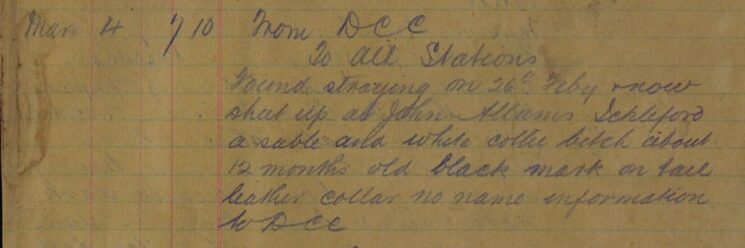 Mar 4 7 10 From DCC
To All Stations
Found straying on 26th Feby & now
shut up at John Allams Ickleford
a sable and white collie bitch about
12 months old black mark on tail
leather collar no name information
to DCC